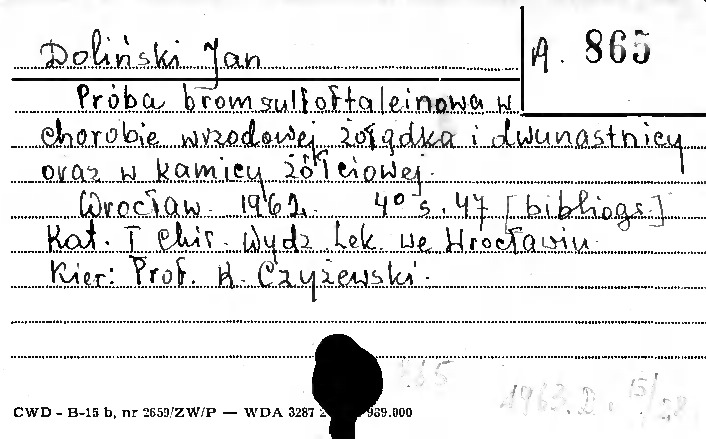 Doliński Jan
A. 865
Próba bromsulfoftaleinowa w
chorobie wrzodowej żołądka i dwunastnicy
oraz w kamicy żółciowej.
Wrocław 1962. 4° s. 47 [bibliogr.]
Kat. I Chir. Wydz. Lek. we Wrocławiu
Kier: Prof. K. Czyżewski.
865
1963. D. 15/28.
CWD - B-15 b, nr 2659/ZW/P — WDA 3287 989.000